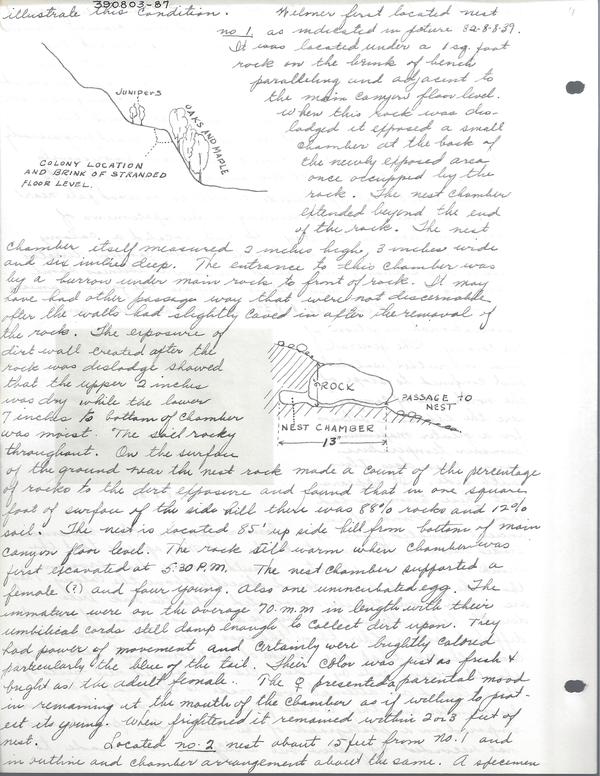 390803-87
illustrate this condition. Wilmer first located nest
no 1, as indicated in picture 32-8-8-39.
It was located under a 1 sq. foot
rock on the brink of bench
paralleling and adjacent to
the main canyon floor level.
When this rock was dis-
lodged it exposed a small
chamber at the back of
the newly exposed area
once occupied by the
rock. The nest chamber
extended beyond the end
of the rock. The nest
JUNIPERS
OAKS AND MAPLE
COLONY LOCATION
AND BRINK OF STRANDED
FLOOR LEVEL.
chamber itself measured 2 inches high, 3 inches wide
and six inches deep. The entrance to this chamber was
by a burrow under main rock to front of rock. It may
have had other passage way that were not discernable
after the walls had slightly caved in after the removal of
the rock. The exposure of
dirt wall created after the
rock was dislodge showed
that the upper 2 inches
was dry while the lower
7 inches to bottom of chamber
was moist. The soil rocky
throughout. On the surface
ROCK
PASSAGE TO
NEST
NEST CHAMBER
13"
of the ground near the nest rock made a count of the percentage
of rocks to the dirt exposure and found that in one square
foot of surface of the side hill there was 88% rocks and 12%
soil. The nest is located 85' up side hill from bottom of main
canyon floor level. The rock still warm when chamber was
first excavated at 5:30 P.M. The nest chamber supported a
female (?) and four young. Also one unincubated egg. The
immature were on the average 70 m.m in length with their
umbilical cords still damp enough to collect dirt upon. They
had power of movement and certainly were brightly colored
particularly the blue of the tail. Their color was just as fresh &
bright as the adult female. The ♀ presented a parental mood
in remaining at the mouth of the chamber as if willing to prot-
ect its young. When frightened it remained within 2 or 3 feet of
nest. Located no. 2 nest about 15 feet from No. 1 and
in outline and chamber arrangement about the same. A specimen